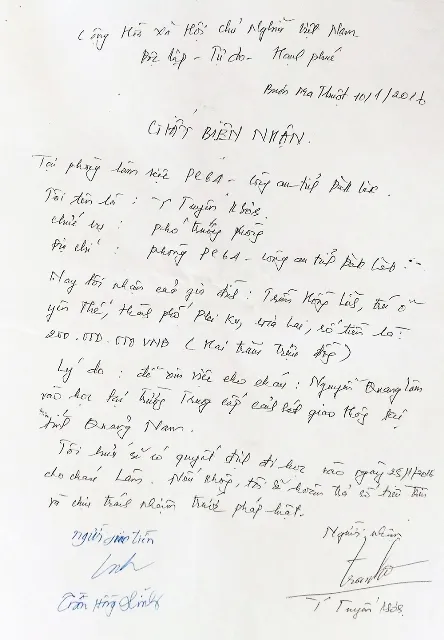 Cộng Hòa xã Hội chủ Nghĩa Việt Nam
Độc lập - Tự do - Hạnh phúc
Buôn Ma Thuột 10/1/2016
GIẤY BIÊN NHẬN
Tại phòng làm việc PC81 - công an tỉnh Đăk Lăk.
Tôi tên là : Tuyên
chức vụ : phó trưởng phòng
Địa chỉ : phòng PC81 - công an tỉnh Đăk Lăk
Nay tôi nhận của gia đình : Trần Hồng, trú ở
yên Thế, thành phố Plei Ku, Gia Lai, số tiền là:
200.000.000 VNĐ (Hai trăm triệu đồng)
Lý do : để xin việc cho cháu : Nguyễn Quang Lâm
vào học tại trường Trung cấp cảnh sát giao thông tại
tỉnh Quảng Nam.
Tôi hứa sẽ có quyết định đi học vào ngày 25/1/2016
cho cháu Lâm. Nếu không, tôi sẽ hoàn trả số tiền trên
và chịu trách nhiệm trước pháp luật.
Người nhận
người giao tiền
Trần Hồng
Tuyên